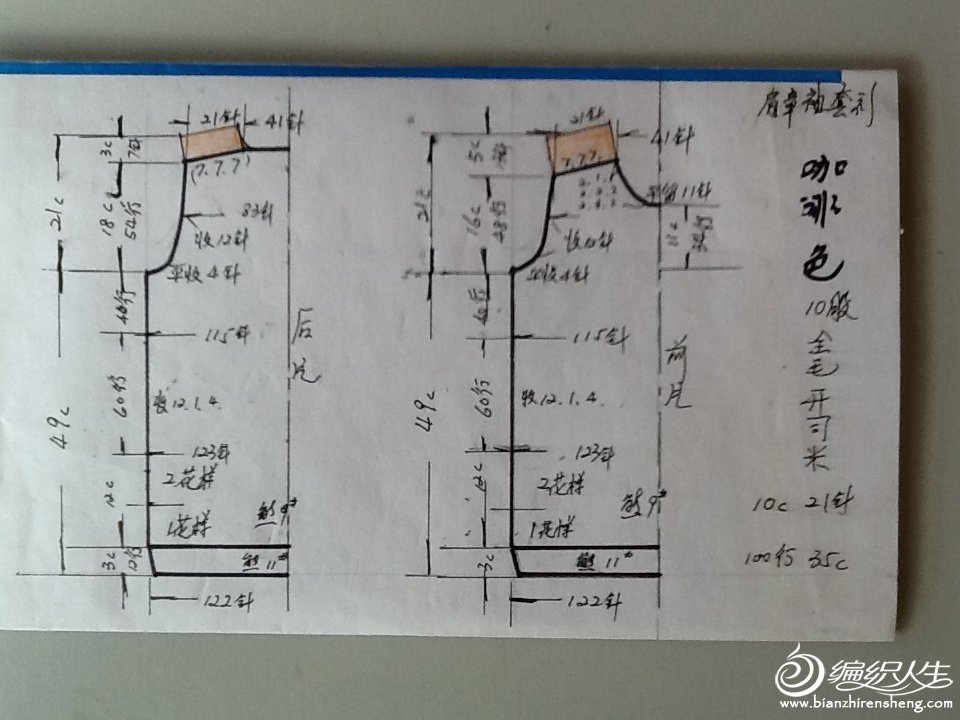 肩章袖套衫
21针 41针
3c 7针
(7.7.7)
21c
18c 54行
83针
收12针
平收4针
40行
115针
后片
60行
收12.1.4.
49c
123针
2花样
12c
1花样
熊9#
3c 12行
熊11#
122针
21针
41针
5c
7.7.7
平留11针
21c
16c 48行
11c
收12针
平收4针
40行
115针
前片
60行
收12.1.4.
49c
123针
2花样
12c
1花样
熊9#
3c
熊11#
122针
咖啡色
10股
全毛开司米
10c 21针
100行 35c
编织人生
www.bianzhirensheng.com